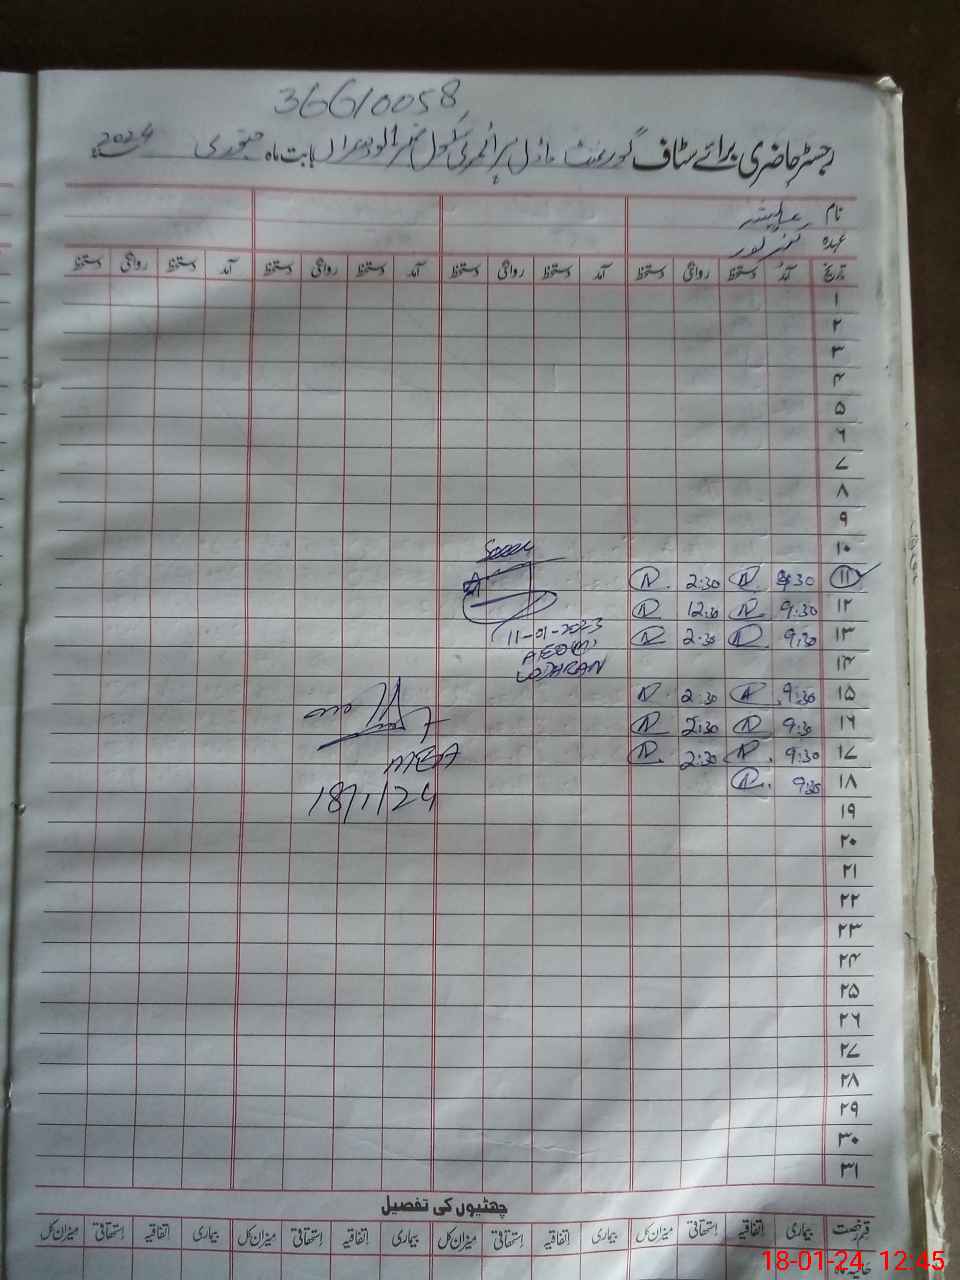 36610058
رجسٹر حاضری برائے سٹاف گورنمنٹ ماڈل پرائمری سکول نمبر 1 لودھراں بابت ماہ جنوری 2024
نام
عہدہ
تاریخ آمد دستخط روانگی دستخط آمد دستخط روانگی دستخط آمد دستخط روانگی دستخط آمد دستخط روانگی دستخط
۱
۲
۳
۴
۵
۶
۷
۸
۹
۱۰
۱۱ 8:30 2:30
۱۲ 9:30 12:30
۱۳ 9:30 2:30
11-01-2023
۱۴
LODHRAN
۱۵ 9:30 2:30
۱۶ 9:30 2:30
۱۷ 9:30 2:30
AEA
۱۸ 9:30
18/1/24
۱۹
۲۰
۲۱
۲۲
۲۳
۲۴
۲۵
۲۶
۲۷
۲۸
۲۹
۳۰
۳۱
چھٹیوں کی تفصیل
قسم رخصت بیماری اتفاقیہ استحقاقی میزان کل بیماری اتفاقیہ استحقاقی میزان کل بیماری اتفاقیہ استحقاقی میزان کل بیماری اتفاقیہ استحقاقی میزان کل
18-01-24, 12:45